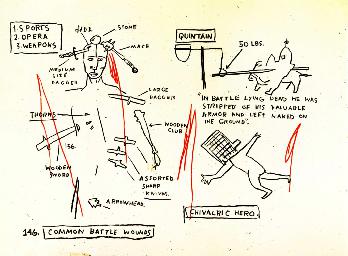 1. SPORTS
2. OPERA
3. WEAPONS
STONE
MACE
MEDIUM
SIZE
DAGGER
LARGE
DAGGER
THORNS
WOODEN
CLUB
56.
WOODEN
SWORD
ASSORTED
SHARP
KNIVES.
ARROWHEAD.
146.
COMMON BATTLE WOUNDS
QUINTAIN
50 LBS.
"IN BATTLE LYING DEAD HE WAS
STRIPPED OF HIS VALUABLE
ARMOR AND LEFT NAKED ON
THE GROUND".
CHIVALRIC HERO.